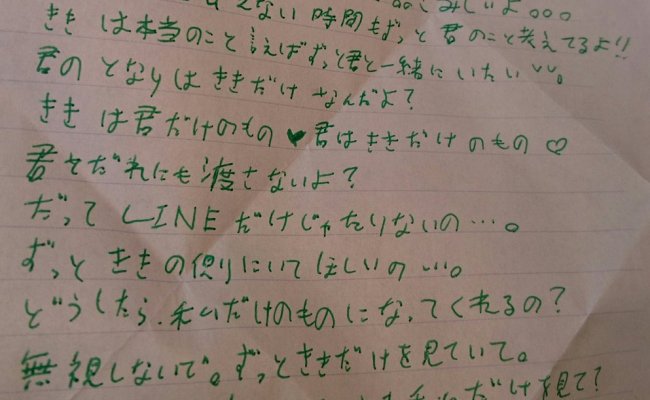 ない時間もずっと君のこと考えてるよ!!
ききは本当のこと言えばずっと君と一緒にいたい
君のとなりはききだけなんだよ?
ききは君だけのもの♥君はききだけのもの♡
君をだれにも渡さないよ?
だってLINEだけじゃたりないの…。
ずっとききの側りにいてほしいの…。
どうしたら、私だけのものになってくれるの?
無視しないで。ずっとききだけを見ていて。
だけを見て?